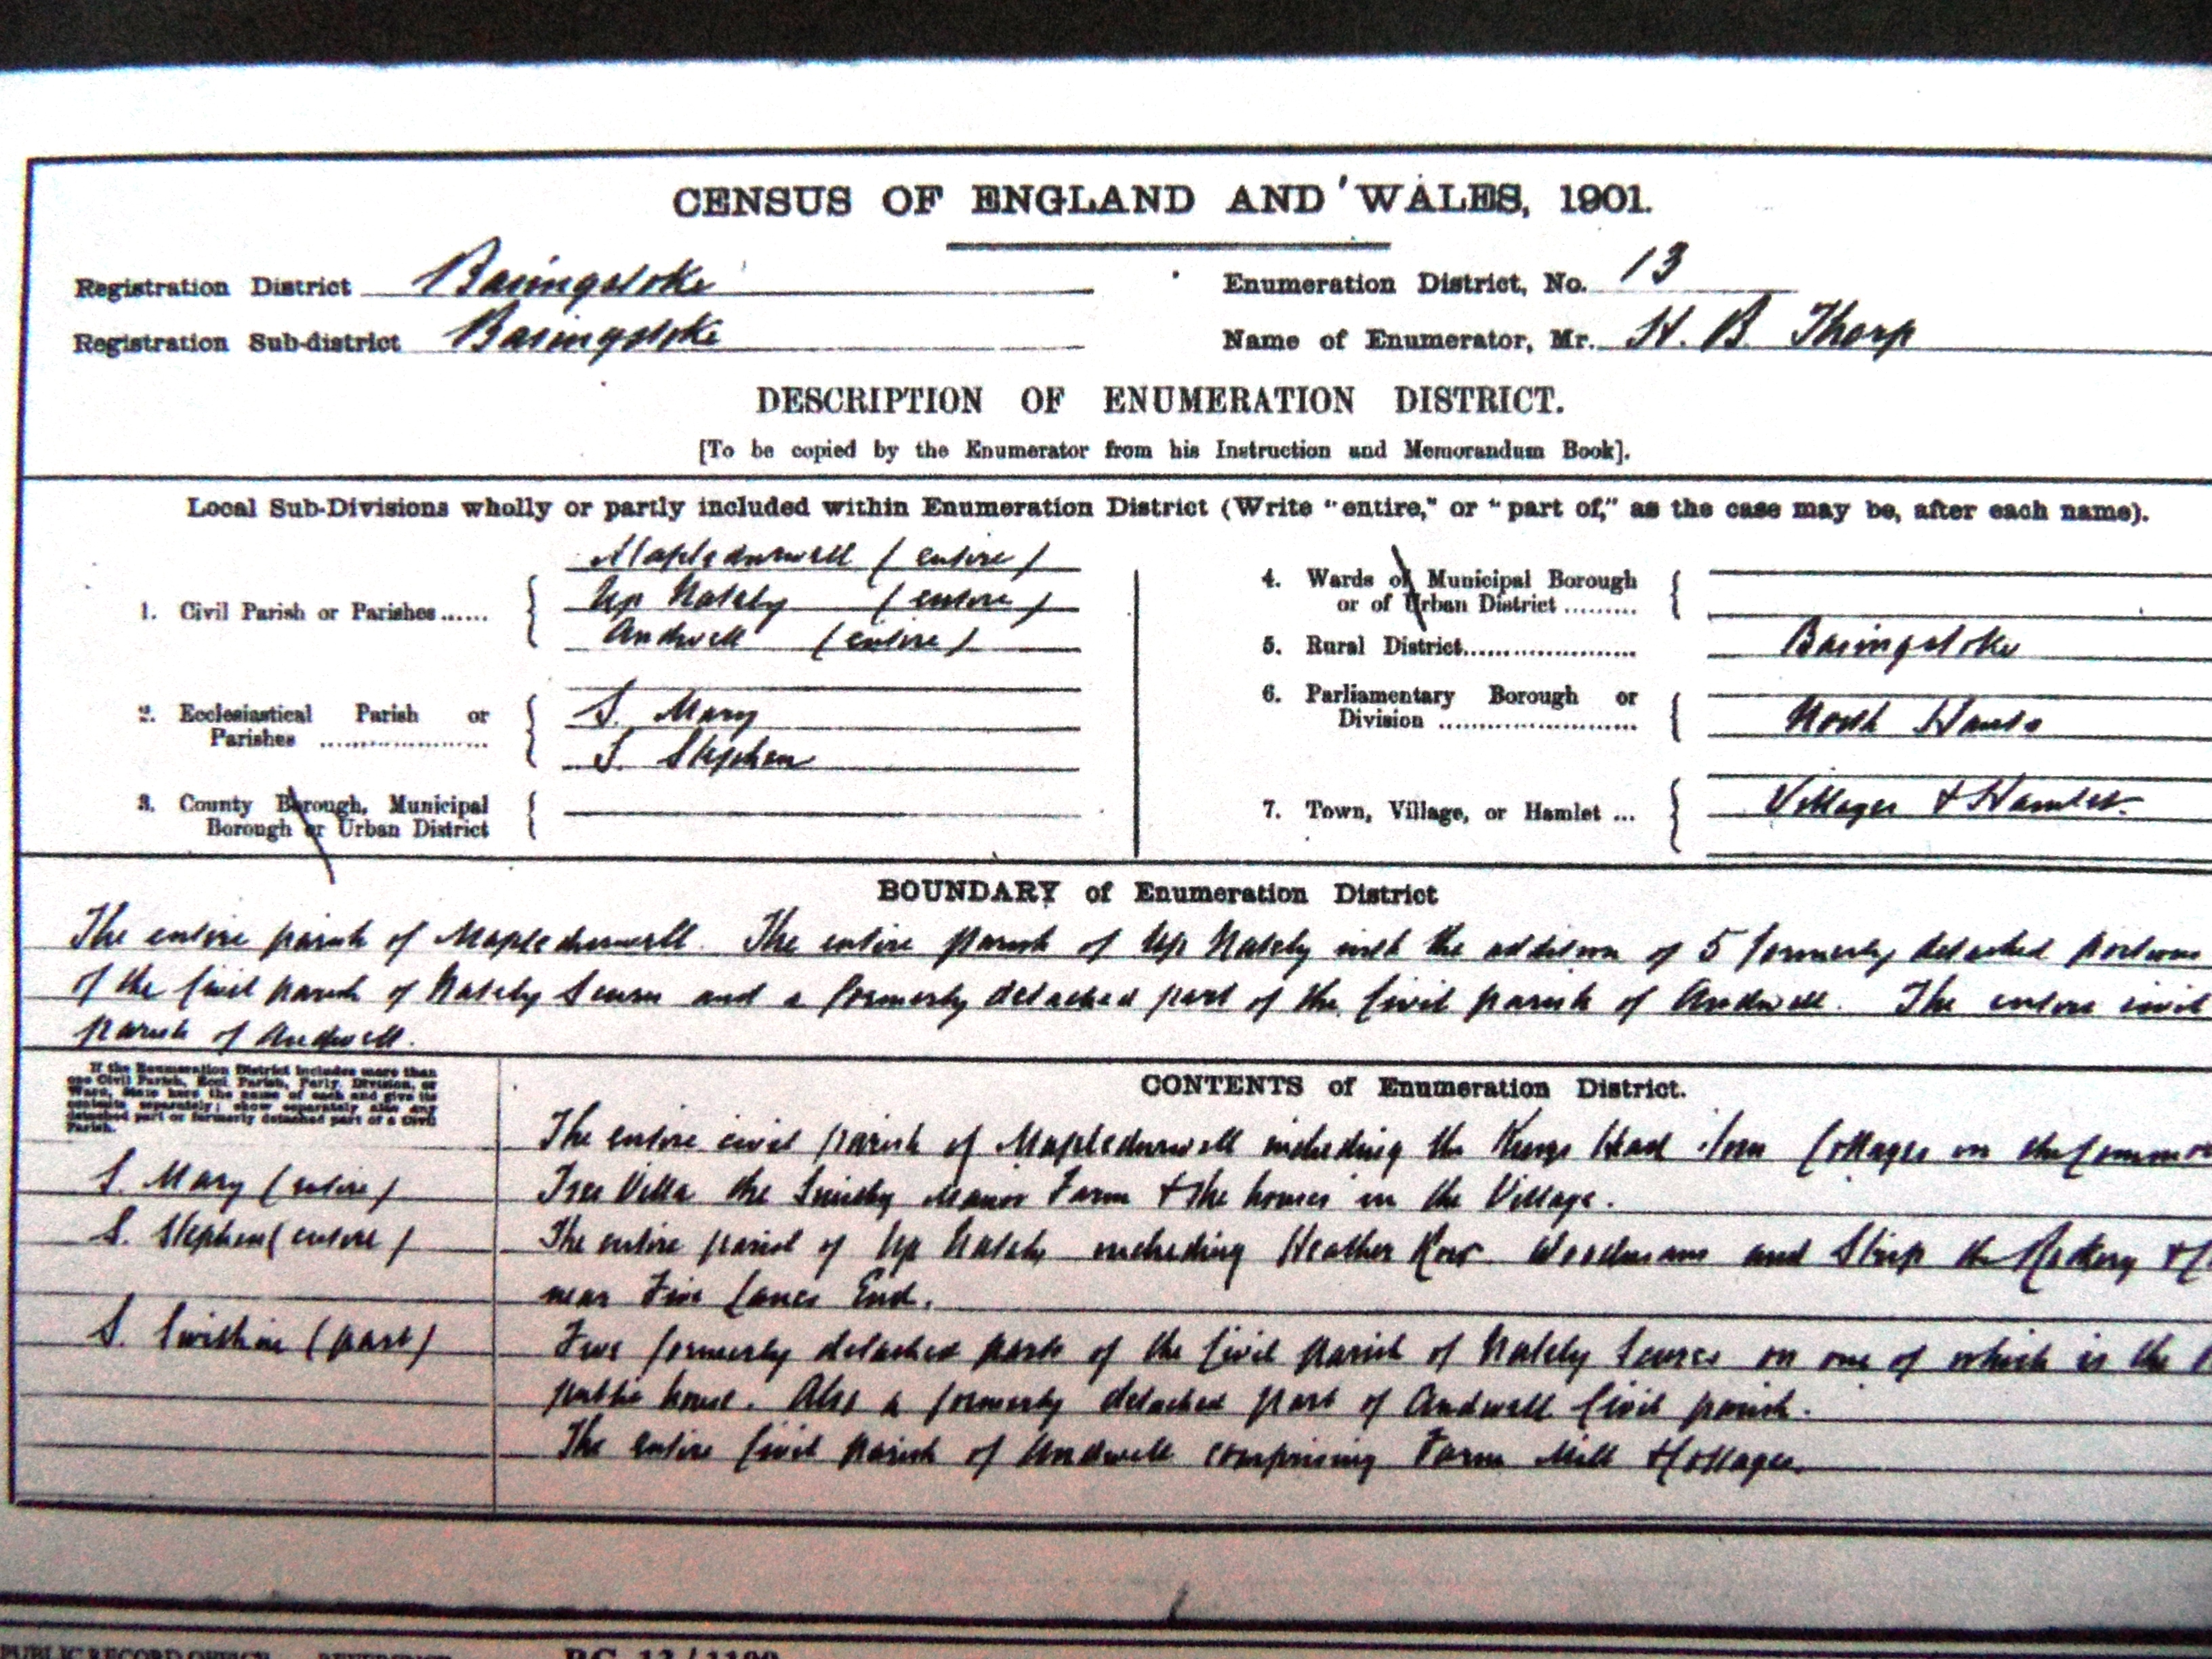 CENSUS OF ENGLAND AND WALES, 1901.
Registration District Basingstoke
Enumeration District, No. 13
Registration Sub-district Basingstoke
Name of Enumerator, Mr. H. B. Thorp
DESCRIPTION OF ENUMERATION DISTRICT.
[To be copied by the Enumerator from his Instruction and Memorandum Book].
Local Sub-Divisions wholly or partly included within Enumeration District (Write "entire," or "part of," as the case may be, after each name).
1. Civil Parish or Parishes......
Mapledurwell (entire)
Up Nately (entire)
Andwell (entire)
2. Ecclesiastical Parish or
Parishes ........................
S. Mary
S. Stephen
3. County Borough, Municipal
Borough or Urban District
4. Wards of Municipal Borough
or of Urban District .........
5. Rural District........................
Basingstoke
6. Parliamentary Borough or
Division ...........................
North Hants
7. Town, Village, or Hamlet ...
Villages & Hamlets
BOUNDARY of Enumeration District
The entire parish of Mapledurwell. The entire parish of Up Nately with the addition of 5 formerly detached portions
of the Civil parish of Nately Scures and a formerly detached part of the Civil parish of Andwell. The entire civil
parish of Andwell.
If the Enumeration District includes more than
one Civil Parish, Eccl. Parish, Parly. Division, or
Ward, State here the name of each and give its
contents separately; show separately also any
detached part or formerly detached part of a Civil
Parish.
CONTENTS of Enumeration District.
The entire civil parish of Mapledurwell including the Kings Head Inn Cottages on the Common
S. Mary (entire)
Villa the Smithy Manor Farm & the houses in the Village.
S. Stephen (entire)
The entire parish of Up Nately including Heather Row and the &
near Five Lanes End.
S. Swithin (part)
Five formerly detached parts of the Civil parish of Nately Scures on one of which is the
public house. Also a formerly detached part of Andwell Civil parish.
The entire Civil parish of Andwell comprising Farm Mill & Cottages.
PUBLIC RECORD OFFICE REFERENCE